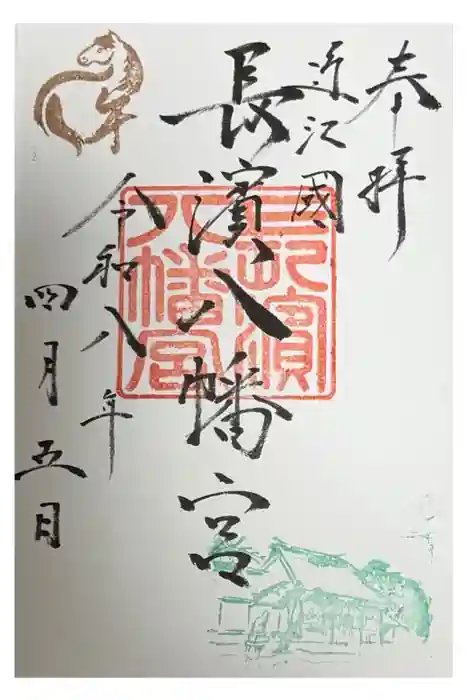 奉拝
近江國
長濱八幡宮
令和八年
四月五日
濱
八幡宮
午